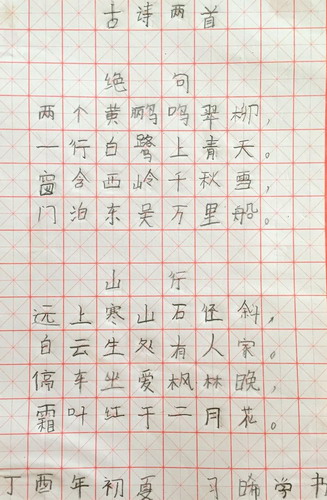 古诗两首
绝句
两个黄鹂鸣翠柳，
一行白鹭上青天。
窗含西岭千秋雪，
门泊东吴万里船。
山行
远上寒山石径斜，
白云生处有人家。
停车坐爱枫林晚，
霜叶红于二月花。
丁酉年初夏 学书